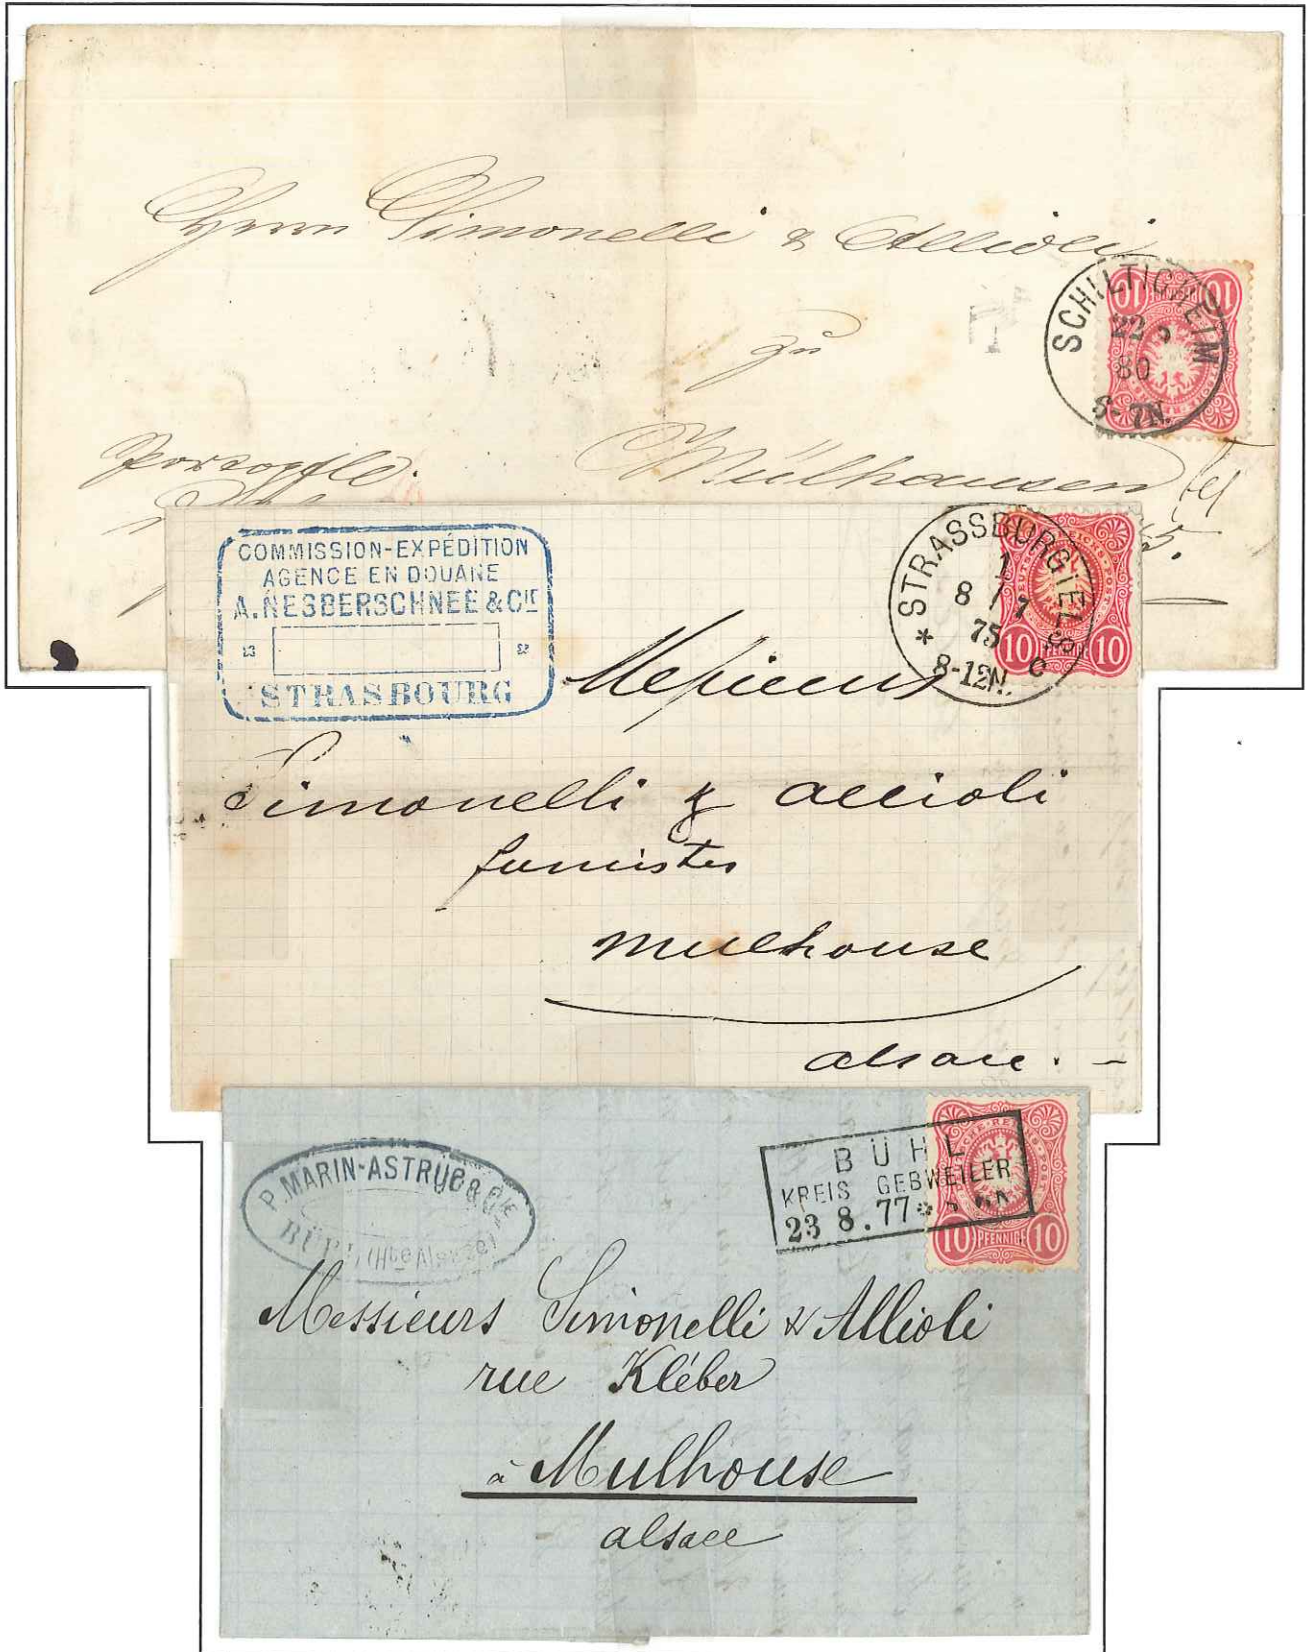 Herrn Simonelli & Allioli
zu
Mülhausen
SCHILTIGHEIM
22 5
80
6-7N.
10 10
COMMISSION-EXPÉDITION
AGENCE EN DOUANE
A. NESBERSCHNEE & CIE
STRASBOURG
STRASSBURG I ELS
1
8 / 7
75
8-12N.
C
*
DEUTSCHE REICHS-POST
10 PFENNIGE 10
Messieurs
Simonelli & Accioli
fumistes
Mulhouse
Alsace. -
P. MARIN-ASTRUC & CIE
BÜHL (Hte Alsace)
BÜHL
KREIS GEBWEILER
23 8. 77
DEUTSCHE REICHS-POST
10 PFENNIGE 10
Messieurs Simonelli & Allioli
rue Kléber
à Mulhouse
alsace